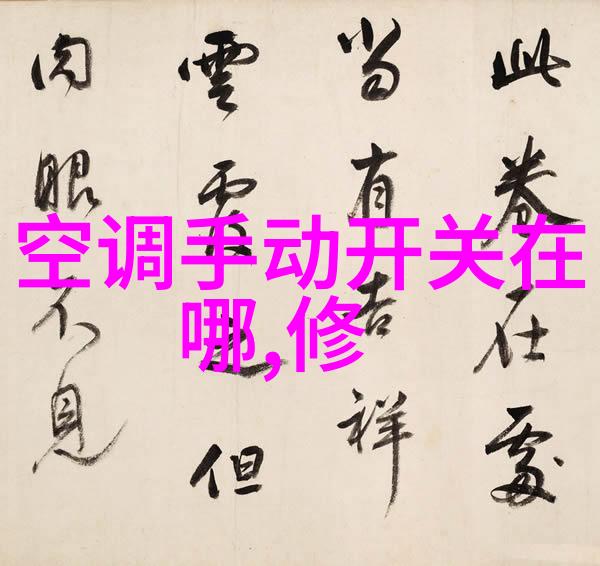 空调手动开关在
哪,修
此卷在處
当有吉祥
雲覆之但
肉眼不見